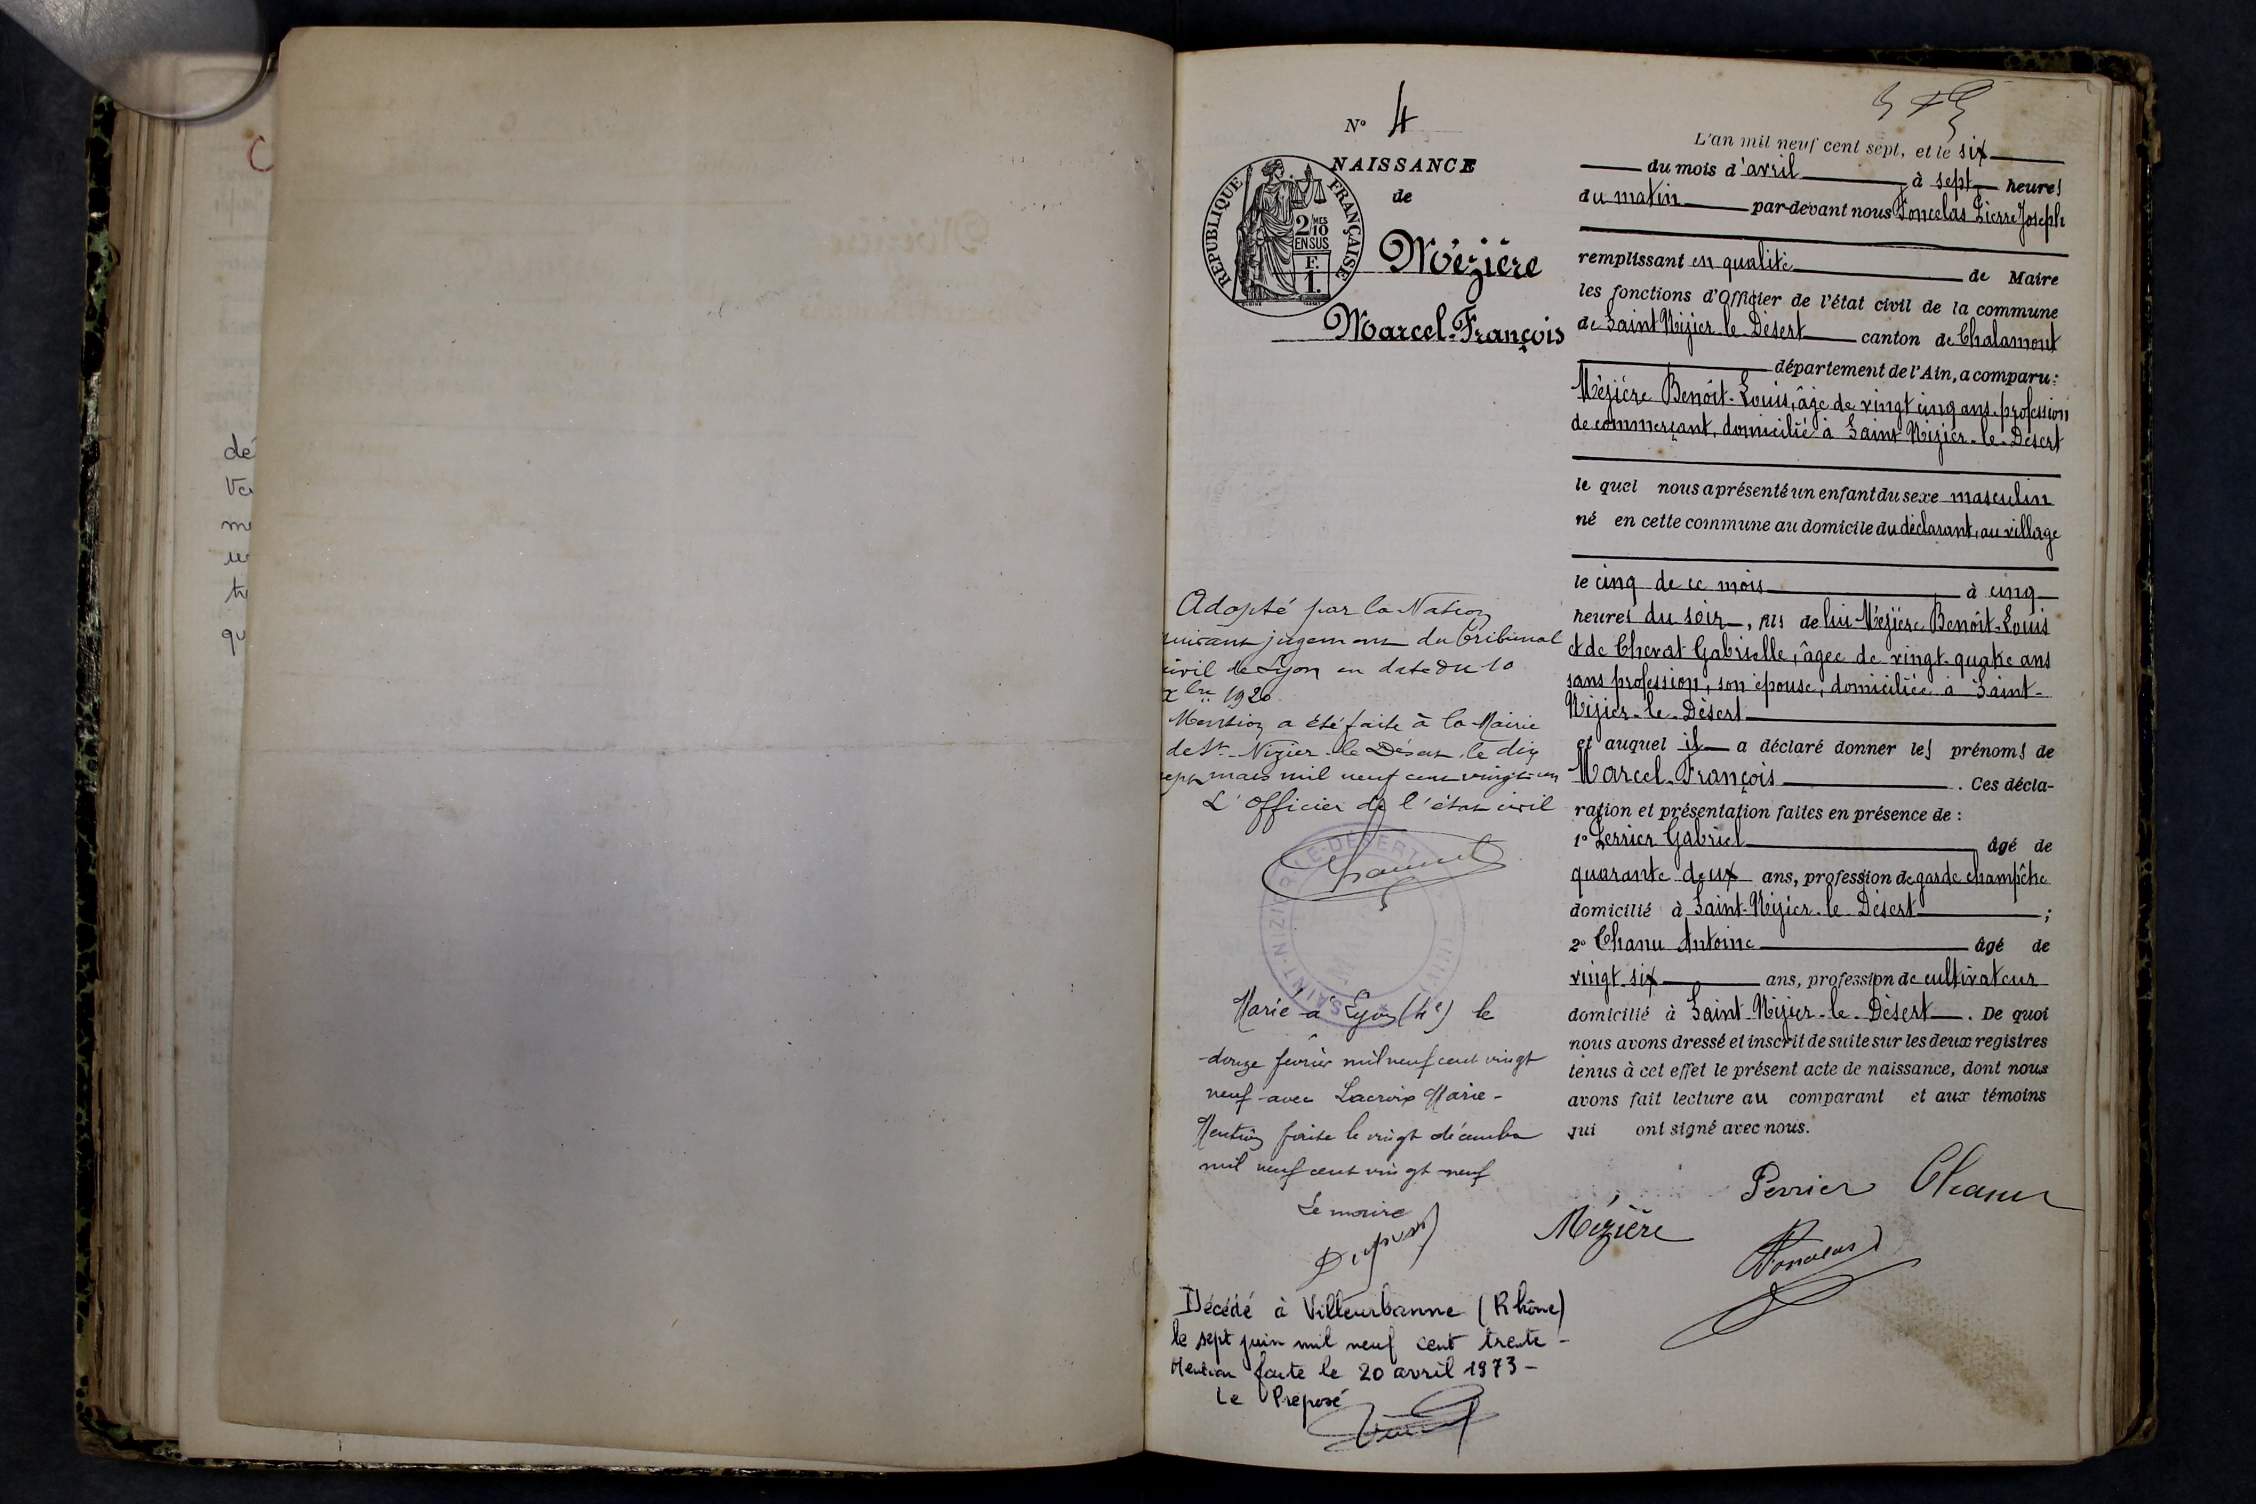 C
dé
Ve
me
tr
qu
N° 4
NAISSANCE
de
Mézière
Marcel-François
REPUBLIQUE FRANÇAISE
2/10 MES
EN SUS
F.
1.
Adopté par la Nation
suivant jugement du tribunal
civil de Lyon en date du 10
Xbre 1920
Mention a été faite à la Mairie
de St-Nizier-le-Désert le dix
sept mars mil neuf cent vingt-un
L'officier de l'état civil
SAINT-NIZIER-LE-DESERT (AIN)
Marié à Lyon (4e) le
douze février mil neuf cent vingt
neuf avec Lacroix Marie-
Mention faite le vingt décembre
mil neuf cent vingt-neuf
Le maire
Décédé à Villeurbanne (Rhône)
le sept juin mil neuf cent trente-
Mention faite le 20 avril 1973-
Le Préposé
L'an mil neuf cent sept, et le six
du mois d'avril à sept heures
du matin par-devant nous Foncelas Pierre Joseph
remplissant en qualité de Maire
les fonctions d'Officier de l'état civil de la commune
de Saint Nizier le Désert canton de Chalamont
département de l'Ain, a comparu:
Mézière Benoît-Louis, âgé de vingt cinq ans, profession
de commerçant, domicilié à Saint Nizier-le-Désert
le quel nous a présenté un enfant du sexe masculin
né en cette commune au domicile du déclarant, au village
le cinq de ce mois à cinq
heures du soir, fils de lui Mézière Benoît-Louis
et de Chevat Gabrielle, âgée de vingt-quatre ans
sans profession, son épouse, domiciliée à Saint-
Nizier-le-Désert
et auquel il a déclaré donner les prénoms de
Marcel-François. Ces décla-
ration et présentation faites en présence de :
1° Perrier Gabriel âgé de
quarante deux ans, profession de garde champêtre
domicilié à Saint-Nizier-le-Désert ;
2° Chanu Antoine âgé de
vingt-six ans, profession de cultivateur
domicilié à Saint-Nizier-le-Désert. De quoi
nous avons dressé et inscrit de suite sur les deux registres
tenus à cet effet le présent acte de naissance, dont nous
avons fait lecture au comparant et aux témoins
qui ont signé avec nous.
Perrier Chanu
Mézière
Foncelas